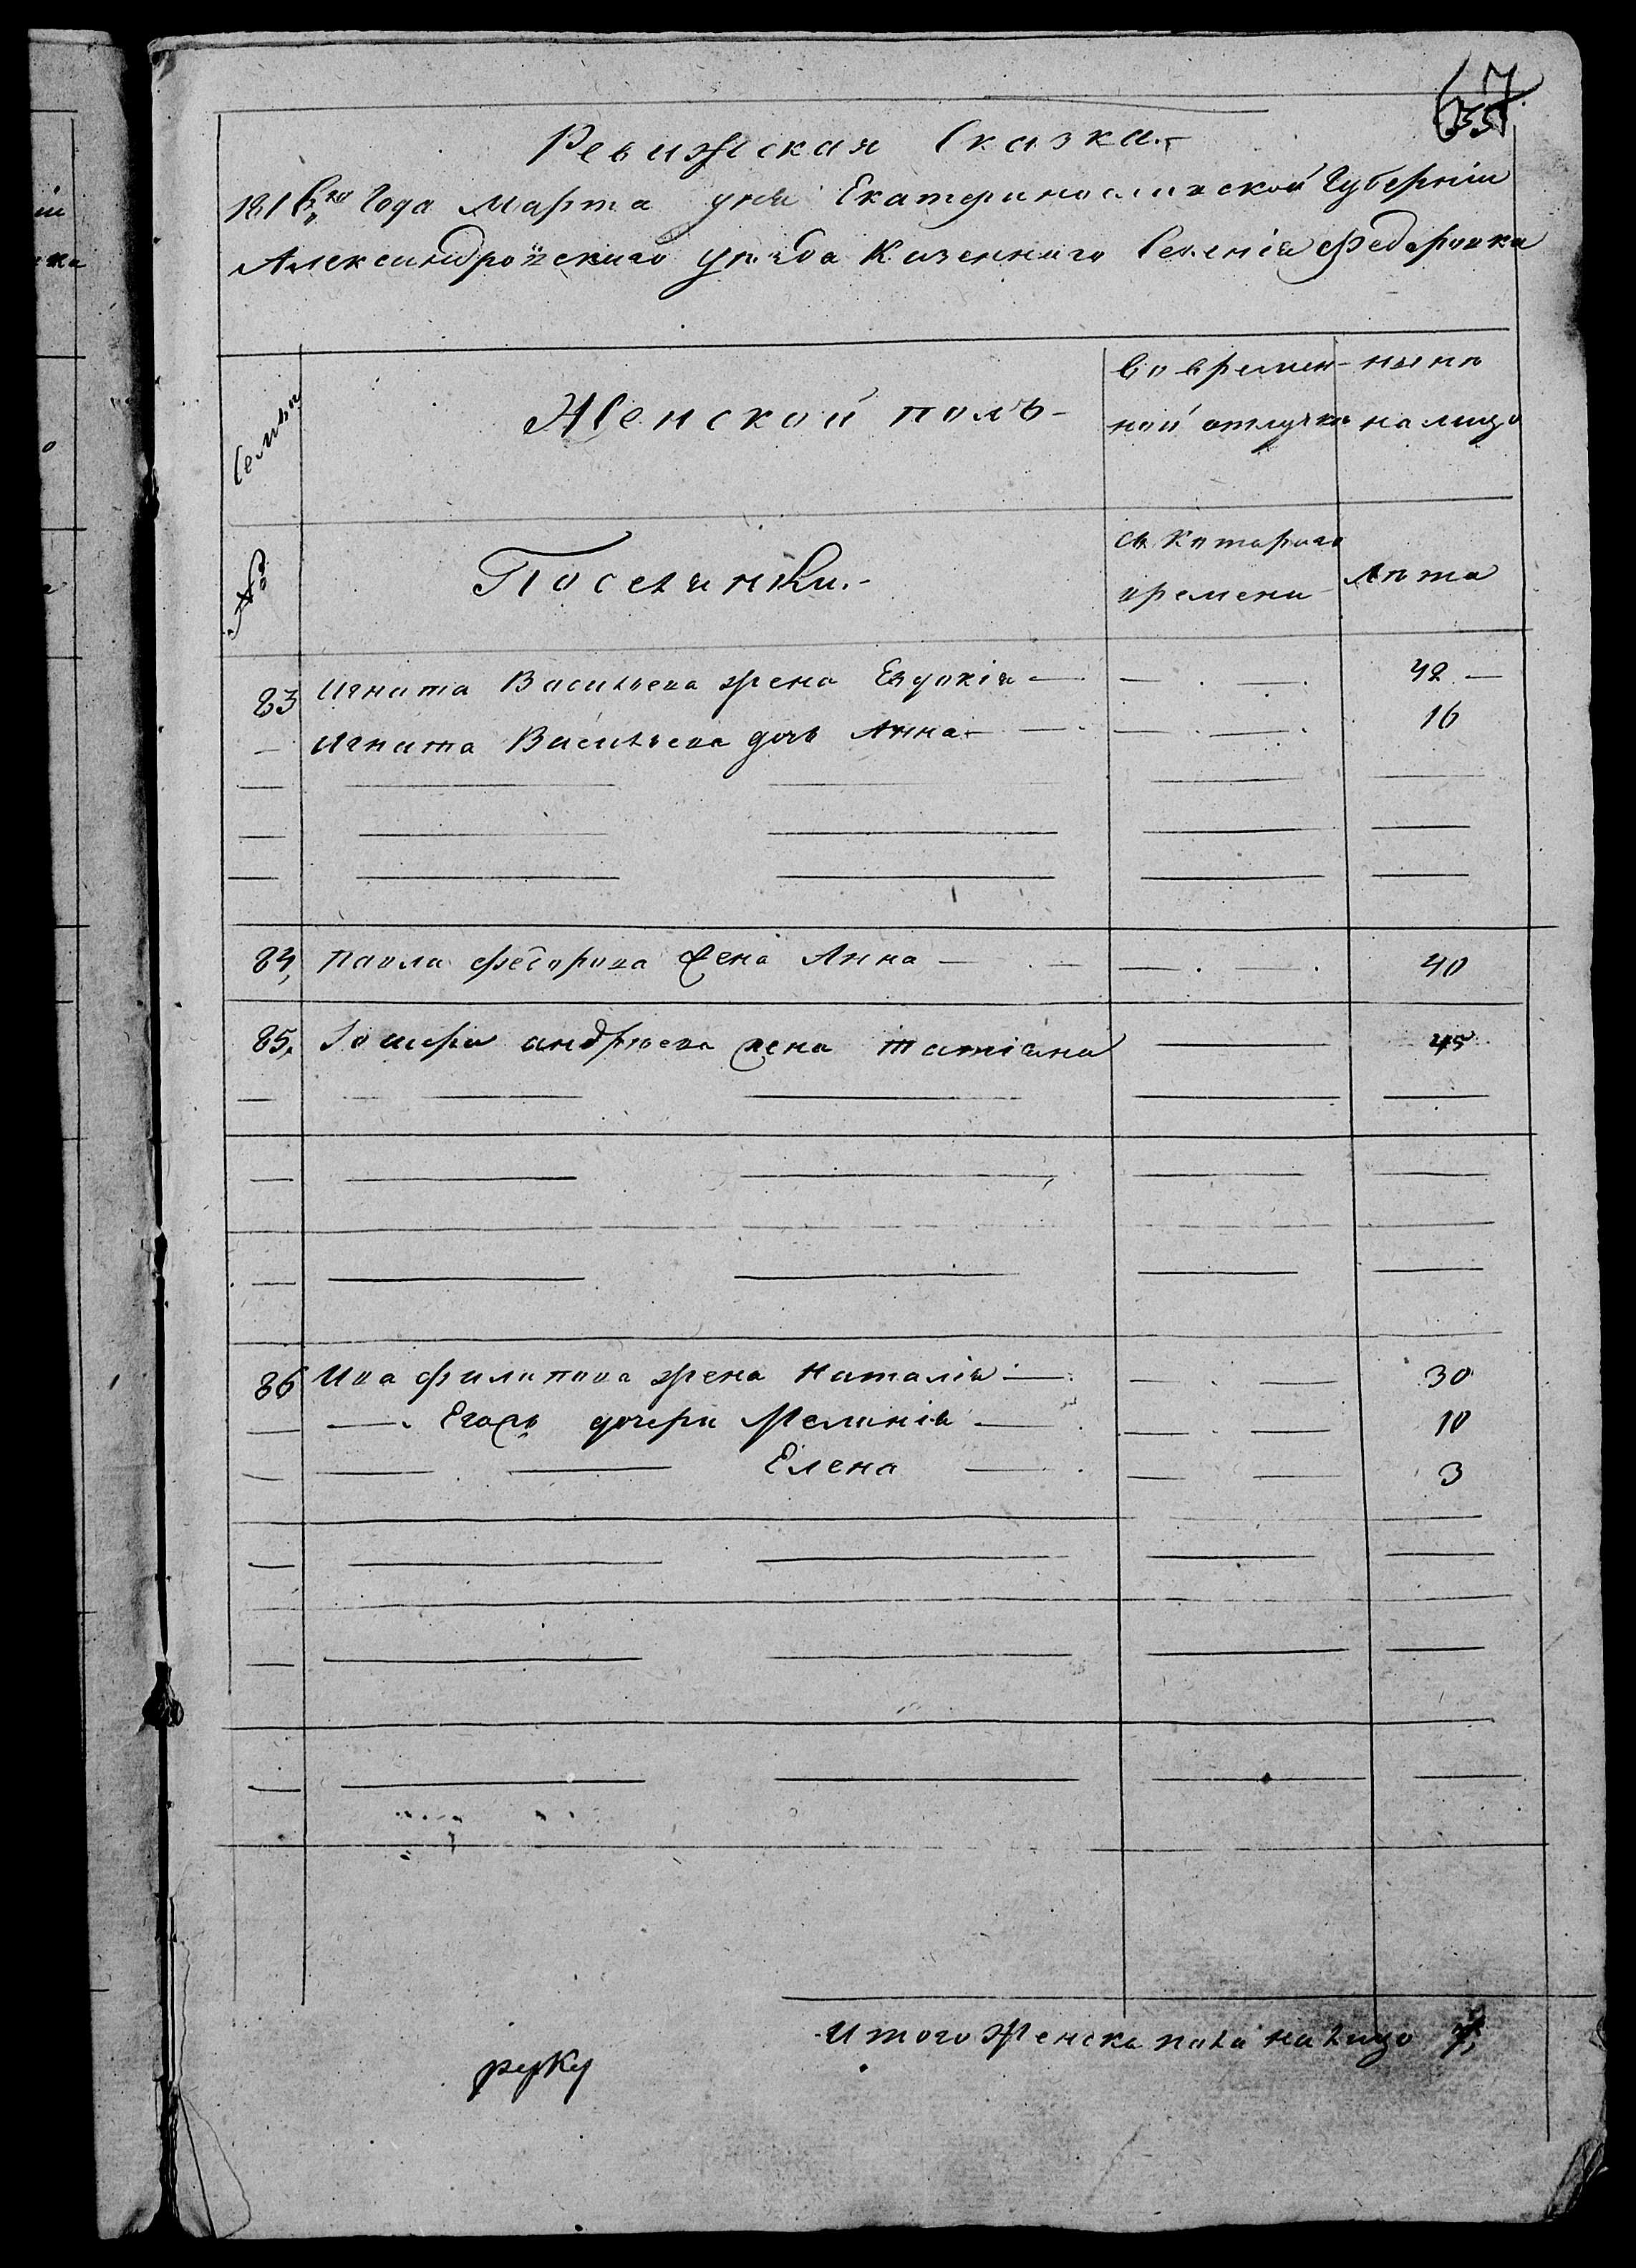 Ревижская Сказка.
1816го Года Марта дня Екатеринославской Губерніи
Александровскаго уѣзда Казеннаго Селенія Федоровки
Семьи
Женской полъ
Во времен-
ной отлучкѣ
нынѣ
на лицо
№
Поселянки.
Съ Котораго
времени
Лѣта
83 Игната Васильева жена Евдокія — 42
— Игната Васильева дочь Анна — 16
84, Павла Федорова жена Анна — 40
85. андрѣева жена татіана — 45
86 Ива филипова жена Наталія — 30
— Егожъ дочери Меланія — 10
— Елена — 3
Итого Женска пола на лицо 7,
руку